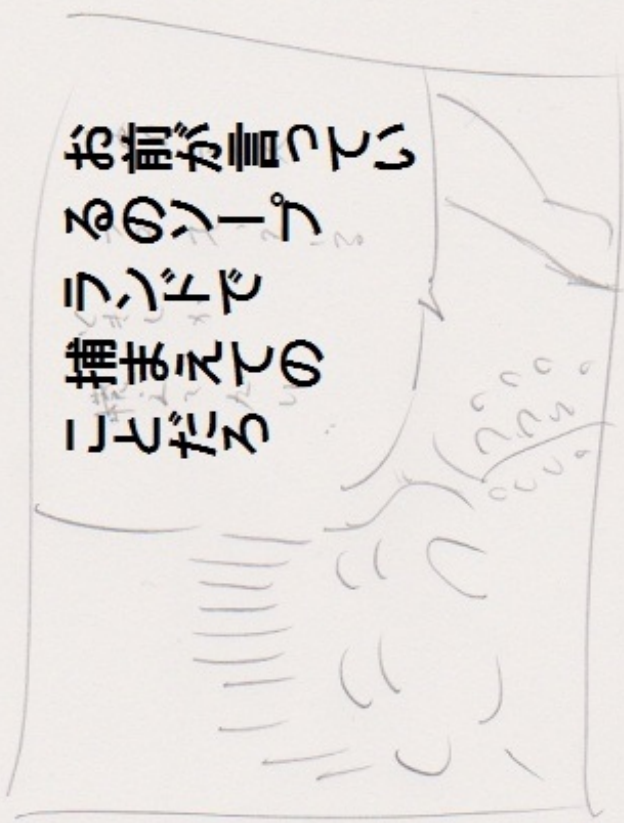 お前が言ってい
るのソープ
ランドで
捕まえての
ことだろ